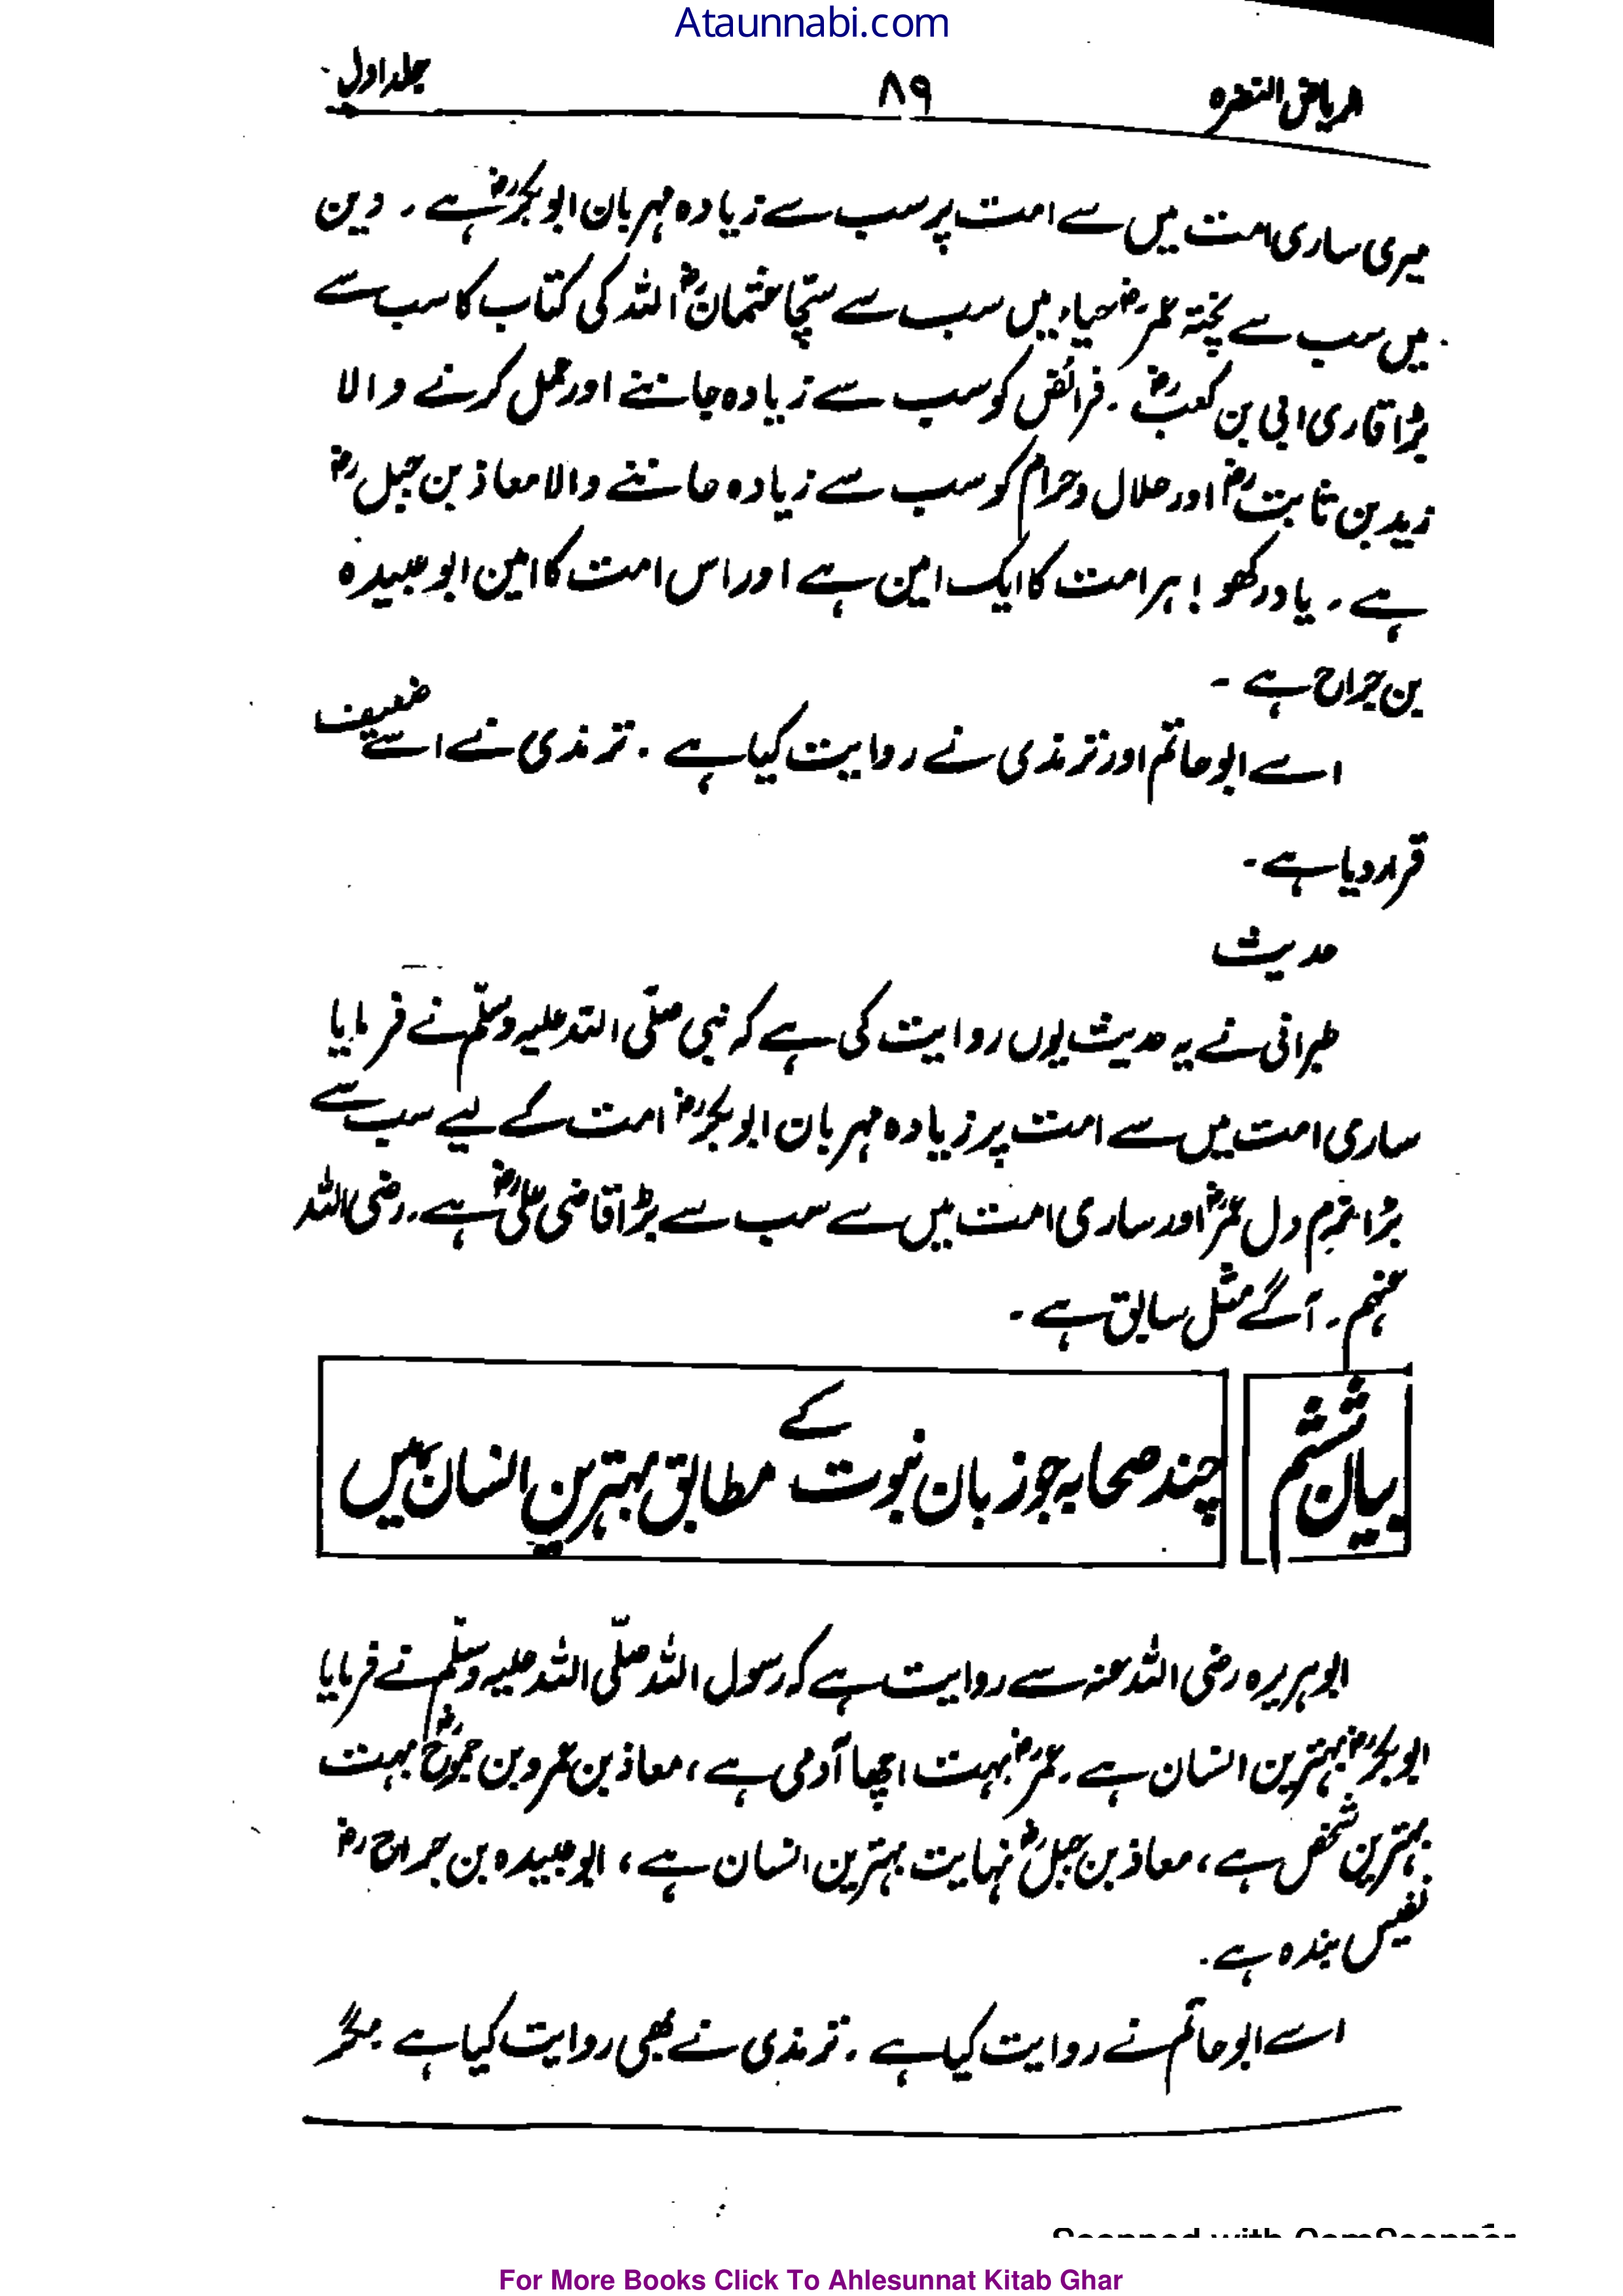 Ataunnabi.com
الریاض النضرہ ۸۹ جلد اول
میری ساری امت میں سے امت پر سب سے زیادہ مہربان ابوبکرؓ ہے ۔ دین
میں سب سے پختہ عمرؓ حیاء میں سب سے سچّا عثمانؓ اللہ کی کتاب کا سب سے
بڑا قاری ابی بن کعبؓ ۔ فرائض کو سب سے زیادہ جاننے اور عمل کرنے والا
زید بن ثابتؓ اور حلال و حرام کو سب سے زیادہ جاننے والا معاذ بن جبلؓ
ہے ۔ یاد رکھو ! ہر امت کا ایک امین ہے اور اس امت کا امین ابو عبیدہ
بن جراح ہے ۔
اسے ابو حاتم اور ترمذی نے روایت کیا ہے ۔ ترمذی نے اسے ضعیف
قرار دیا ہے ۔
حدیث
طبرانی نے یہ حدیث یوں روایت کی ہے کہ نبی صلّی اللہ علیہ وسلّم نے فرمایا
ساری امت میں سے امت پر زیادہ مہربان ابوبکرؓ امت کے لیے سب سے
بڑا نرم دل عمرؓ اور ساری امت میں سے سب سے بڑا قاضی علیؓ ہے ۔ رضی اللہ
عنہم ۔ آگے مثل سابق ہے ۔
بیان ششم
چند صحابہ جو زبان نبوت کے مطابق بہترین انسان ہیں
ابو ہریرہ رضی اللہ عنہ سے روایت ہے کہ رسول اللہ صلّی اللہ علیہ وسلّم نے فرمایا
ابوبکرؓ بہترین انسان ہے ۔ عمرؓ بہت اچھا آدمی ہے ، معاذ بن عمرو بن جموحؓ بہت
بہترین شخص ہے ، معاذ بن جبلؓ نہایت بہترین انسان ہے ، ابو عبیدہ بن جراحؓ
نفیس بندہ ہے ۔
اسے ابو حاتم نے روایت کیا ہے ۔ ترمذی نے بھی روایت کیا ہے ۔ مگر
For More Books Click To Ahlesunnat Kitab Ghar